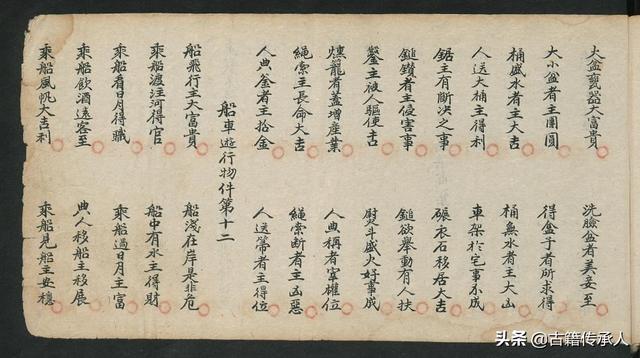 火盆甕器大富貴　洗臉盆者美妾至
大小盆者主團圓　得盒子者所求得
桶盛水者主大吉　桶無水者主大凶
人送大桶主得利　車架於宅事不成
鋸主有斷決之事　碾衣石移居大吉
鎚鑚者主侵害事　鎚欲舉動有人扶
鑿主被人驅使吉　熨斗盛火好事成
燻籠者蓋增産業　人典稱者掌權位
繩索主長命大吉　繩索斷者主凶惡
人典釜者主拾金　人送箒者主得位
船車遊行物件第十二
船飛行主大富貴　船淺在岸是非危
乘船渡江河得官　船中有水主得財
乘船看日月得職　乘船過日月主富
乘船飲酒遠客至　典人移船主移展
乘船風帆大吉利　乘船見船主安穩
头条 @古籍传承人